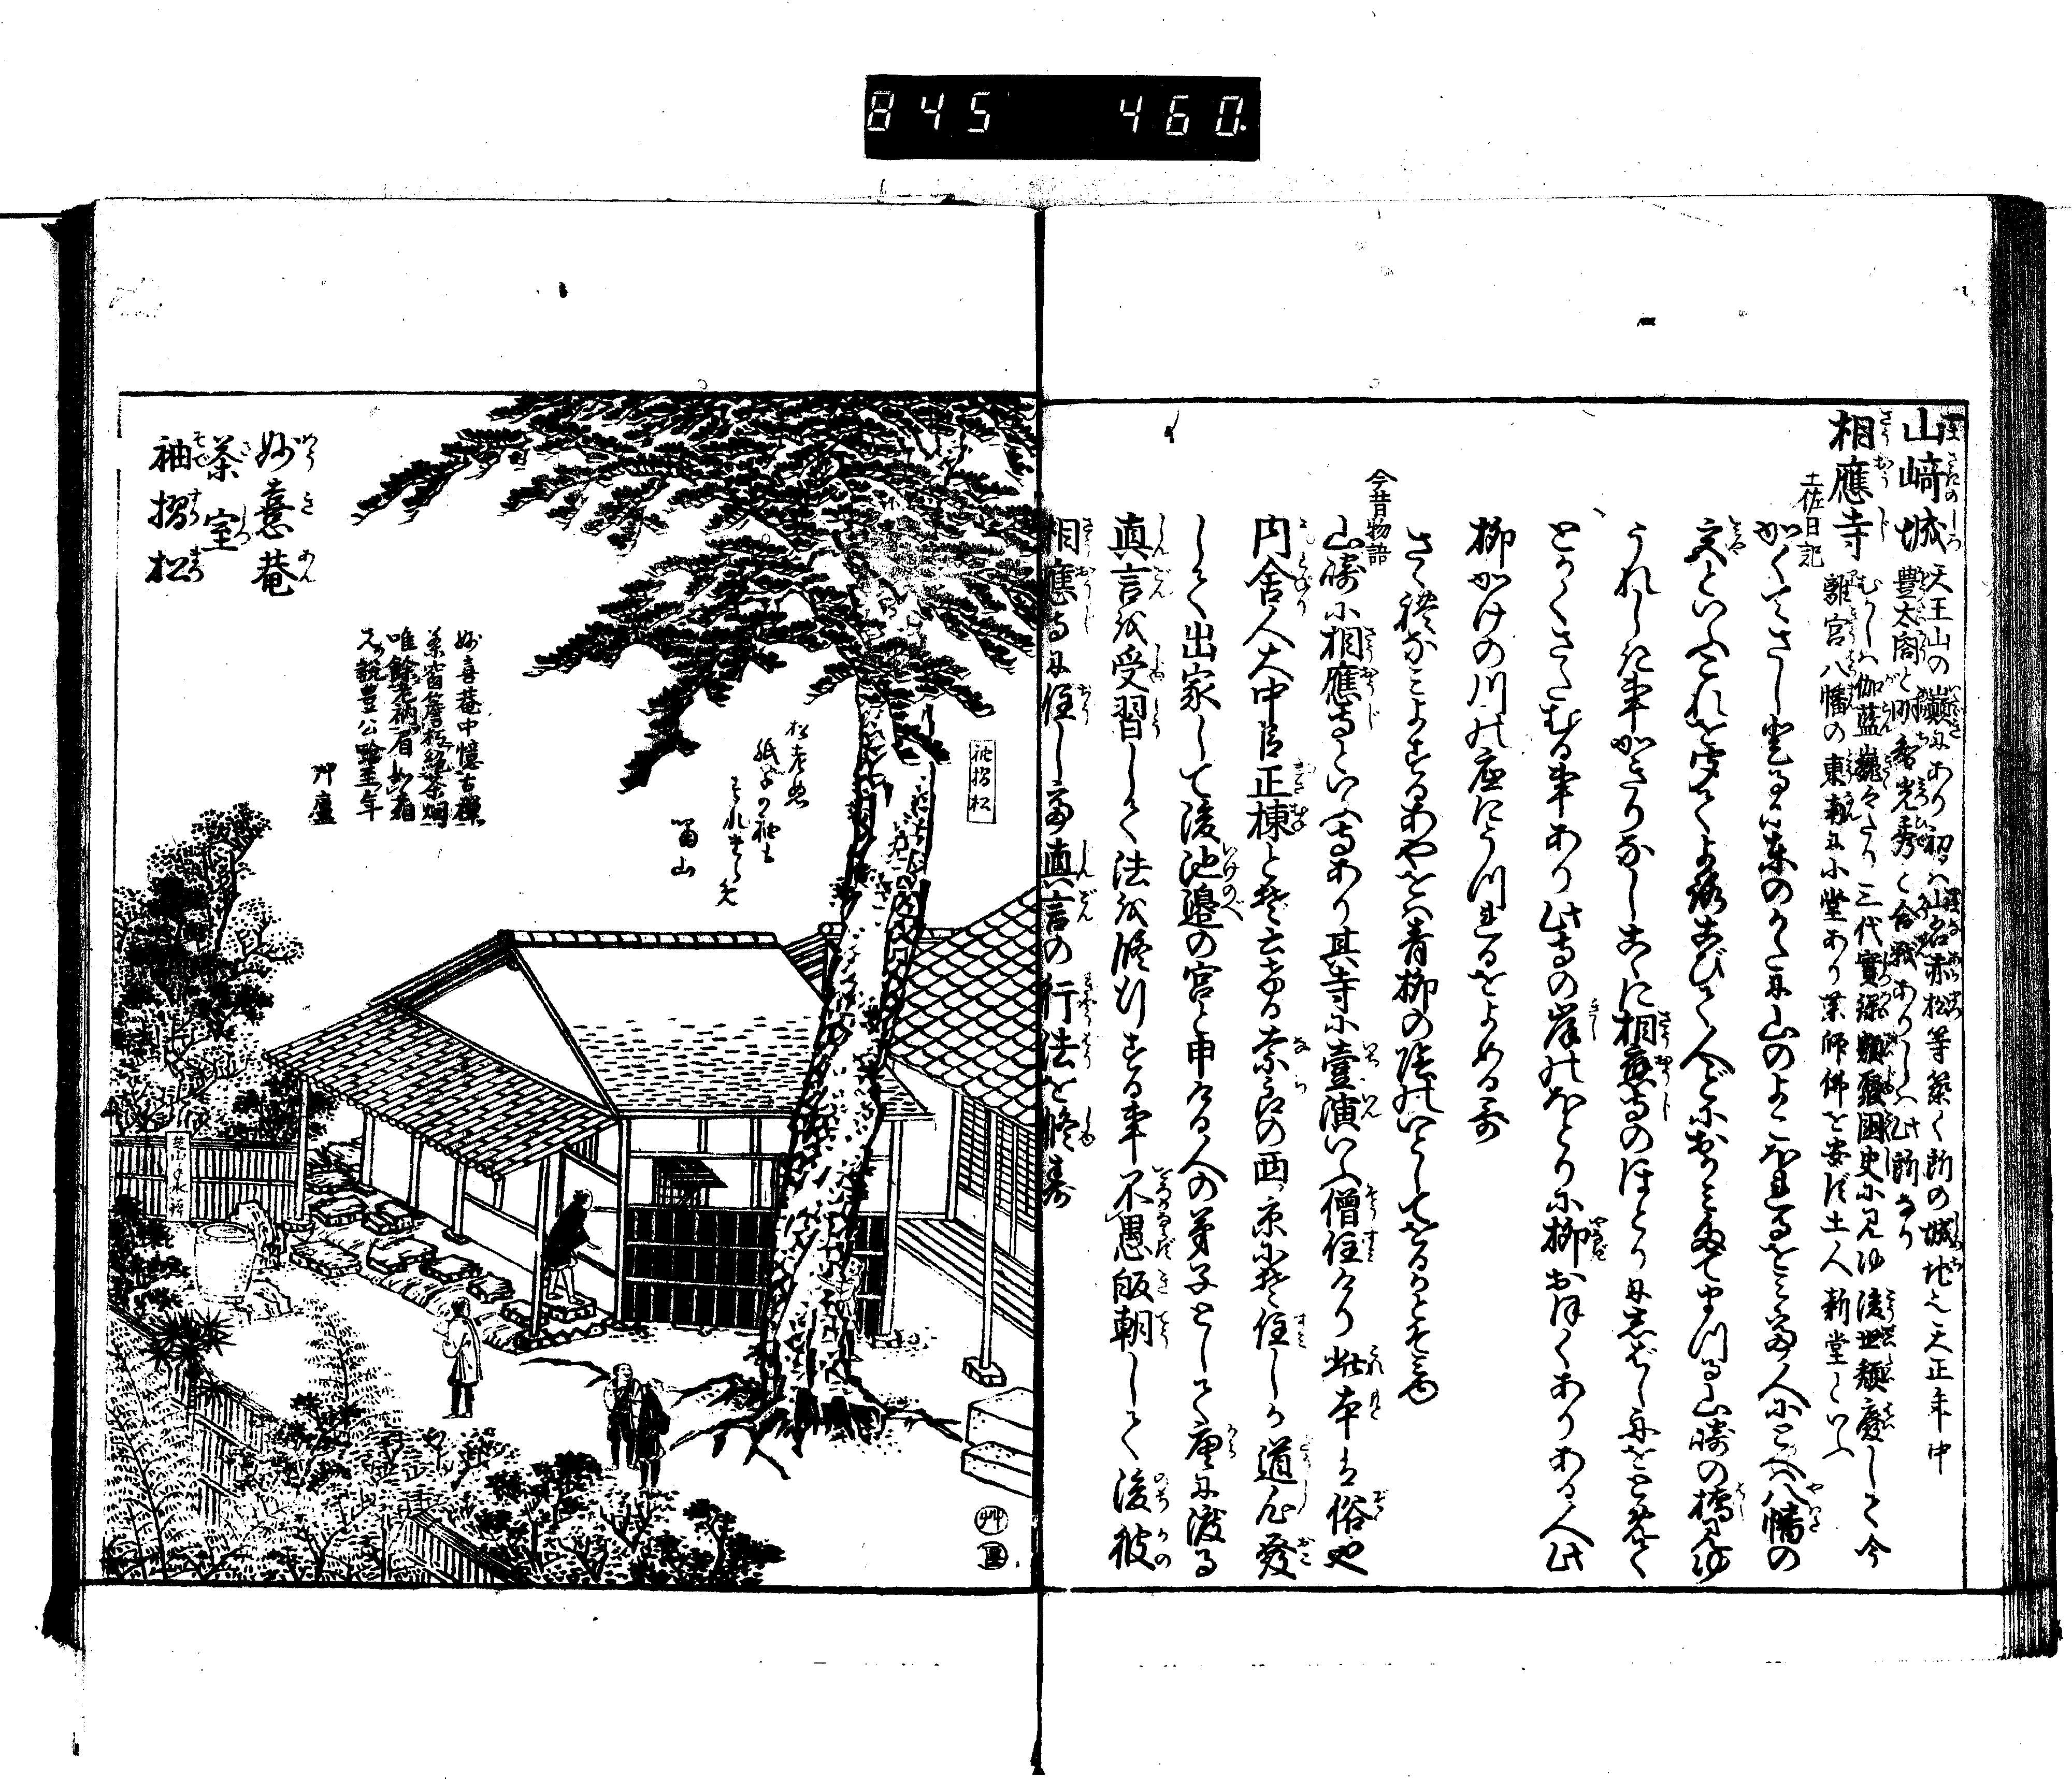 845 460.
山﨑城 天王山の巓にあり初は山名赤松等築く所の城地也天正年中
豊太閤と明智光秀と合戦ありしは此所なり
相應寺 むかしは伽藍巍々たり三代實録類聚國史に見ゆ後世頽廢して今
離宮八幡の東南に小堂あり薬師佛を安ず土人新堂といふ
土佐日記
かくてさし登るに東のかたに山のよこほれるを見て人にとへば八幡の
宮といふこれを聞てよろこびて人〴〵おがみ奉る山崎の橋見ゆ
うれしき事かぎりなしこゝに相應寺のほとりにしばし舟をとゞめて
とかくさだむる事あり此寺の岸のほとりに柳おほくありある人此
柳かげの川の底にうつれるをよめる哥
さゞ波かよするあやをば青柳の陰のいとして
今昔物語
山﨑に相應寺といふ寺あり其寺に壹演といふ僧住けり此本は俗也
内舎人大中臣正棟とぞ云ける奈良の西京にぞ住しが道心發
して出家して後池邉の宮と申ける人の弟子として唐に渡る
真言を受習して法を修行する事不愚皈朝して後彼
相應寺に住し喬真言の行法を修す
妙喜菴
茶室
袖摺松
妙喜菴中憶古禅
茶窗簷朽絶茶烟
唯餘老衲眉如霜
先説豊公臨
艸廬
松老ぬ
紙子の袖も
留山
袖摺松
芝山手水鉢